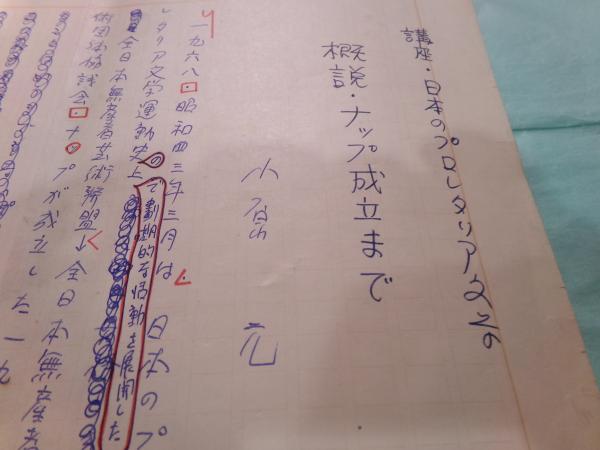 講座・日本のプロレタリア文学
概説・ナップ成立まで
小原 元
一九六八・昭和四三年三月は 日本のプ
レタリア文学運動史上の
で劃期的な活動を展開した
全日本無産者芸術聯盟 全日本無産者
術団体協議会・ナップが成立した一九